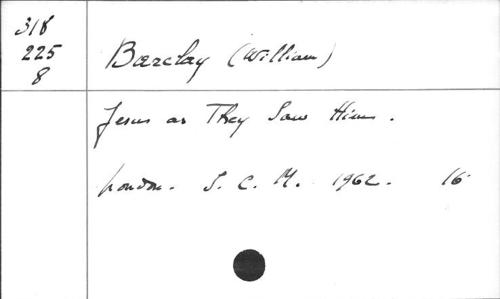 318
225
8
Barclay (William)
Jesus as They Saw Him.
London. S. C. M. 1962. 16